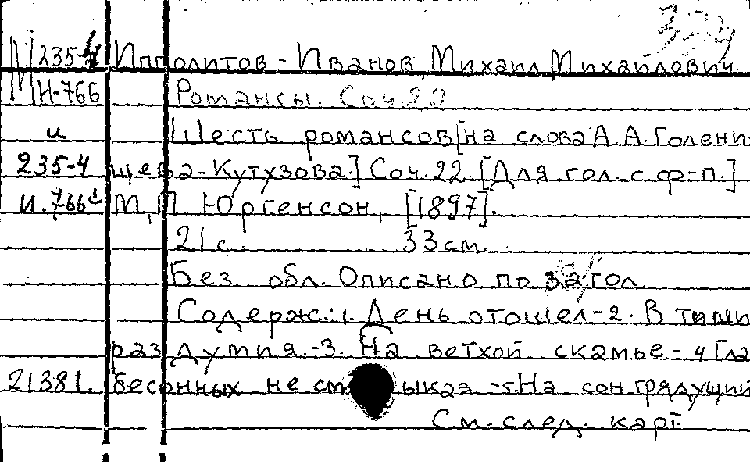 М 235-4 Ипполитов - Иванов, Михаил Михаилович
МИ-766 Романсы. Соч. 22
и Шесть романсов [на слова А.А. Голени-
235-4 щева-Кутузова.] Соч. 22. [Для гол. с ф-п.]
И.766 М., П. Юргенсон, [1897].
21 с. 33 см.
Без обл. Описано по загол
Содерж.: 1. День отошел - 2. В тиши
раздумия. - 3. На ветхой скамье. - 4 Гла
21381. бесонных не смыкая - 5 На сон грядущий
См. след. карт